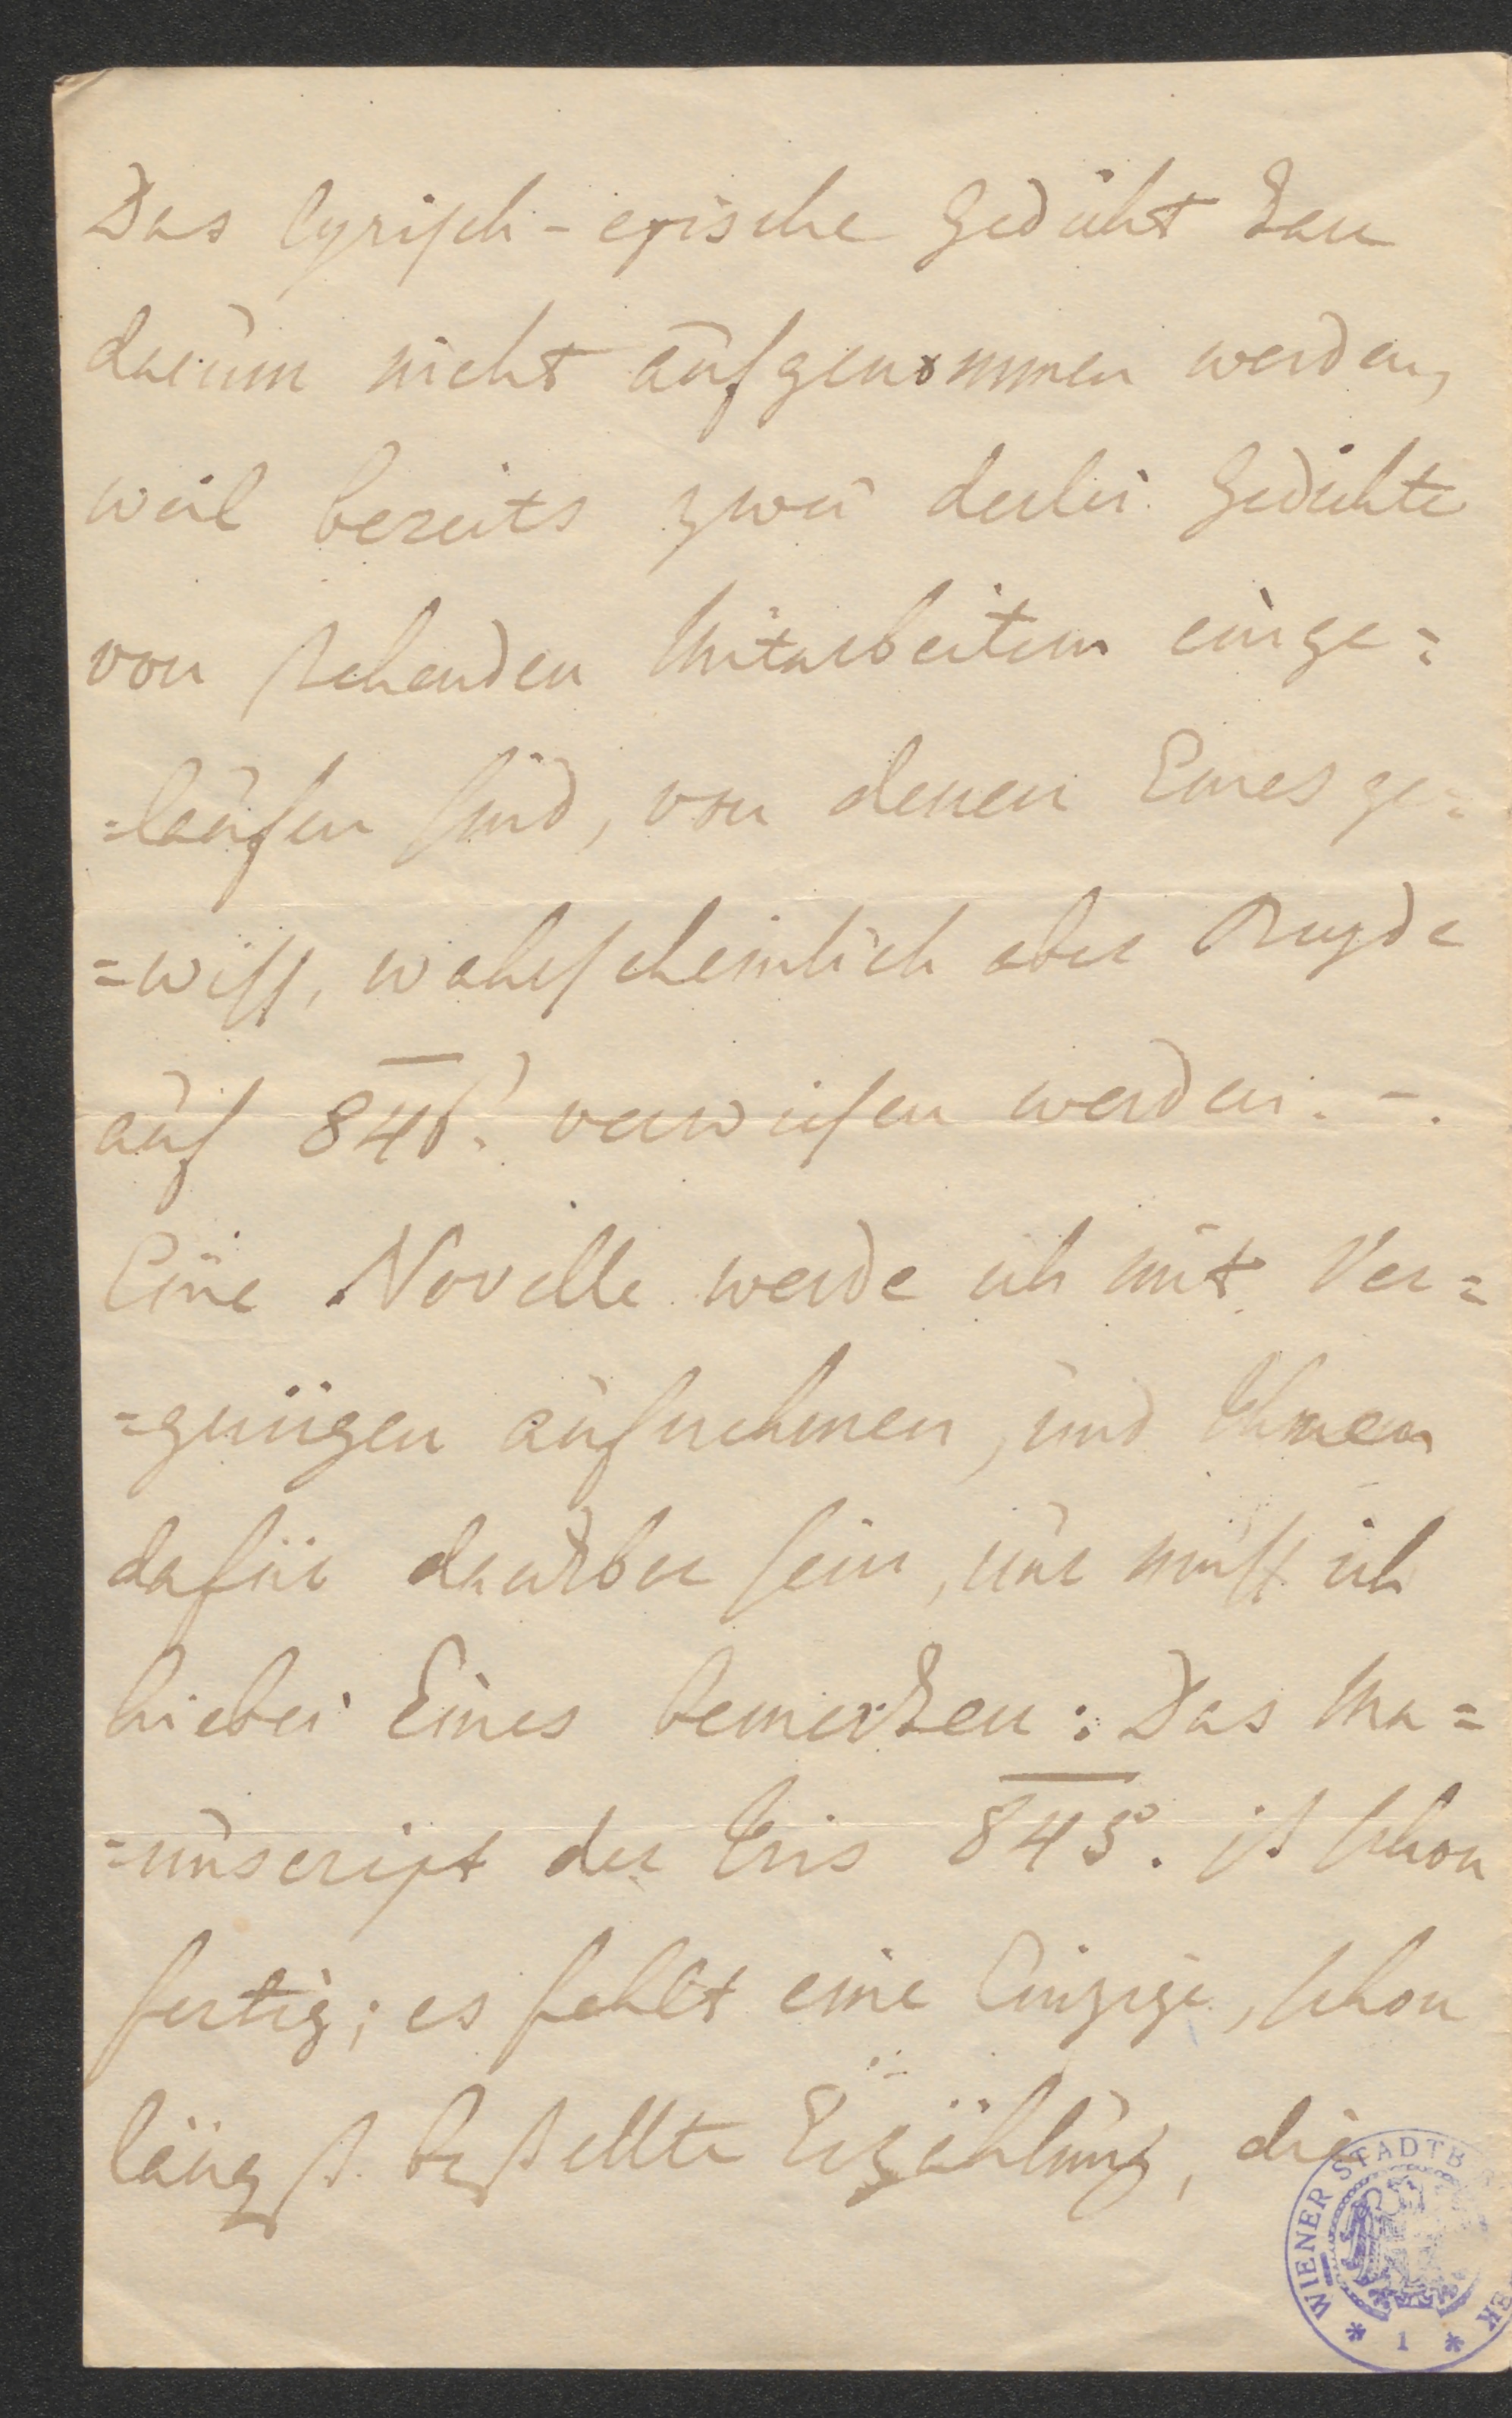 Das lyrisch-epische Gedicht kan
darum nicht aufgenommen werden,
weil bereits zwei derlei Gedichte
von stehenden Mitarbeitern einge=
=laufen sind, von denen Eines ge=
=wiss, wahrscheinlich aber Beyde
auf 846. verwiesen werden. -.
Eine Novelle werde ich mit Ver=
=gnügen aufnehmen, und Ihnen
dafür dankbar sein, nur muss ich
hiebei Eines bemerken: Das Ma=
=nuscript der Iris 845. ist schon
fertig; es fehlt eine Einzige, schon
längst bestellte Erzählung, die
WIENER STADTB
EK
* 1 *